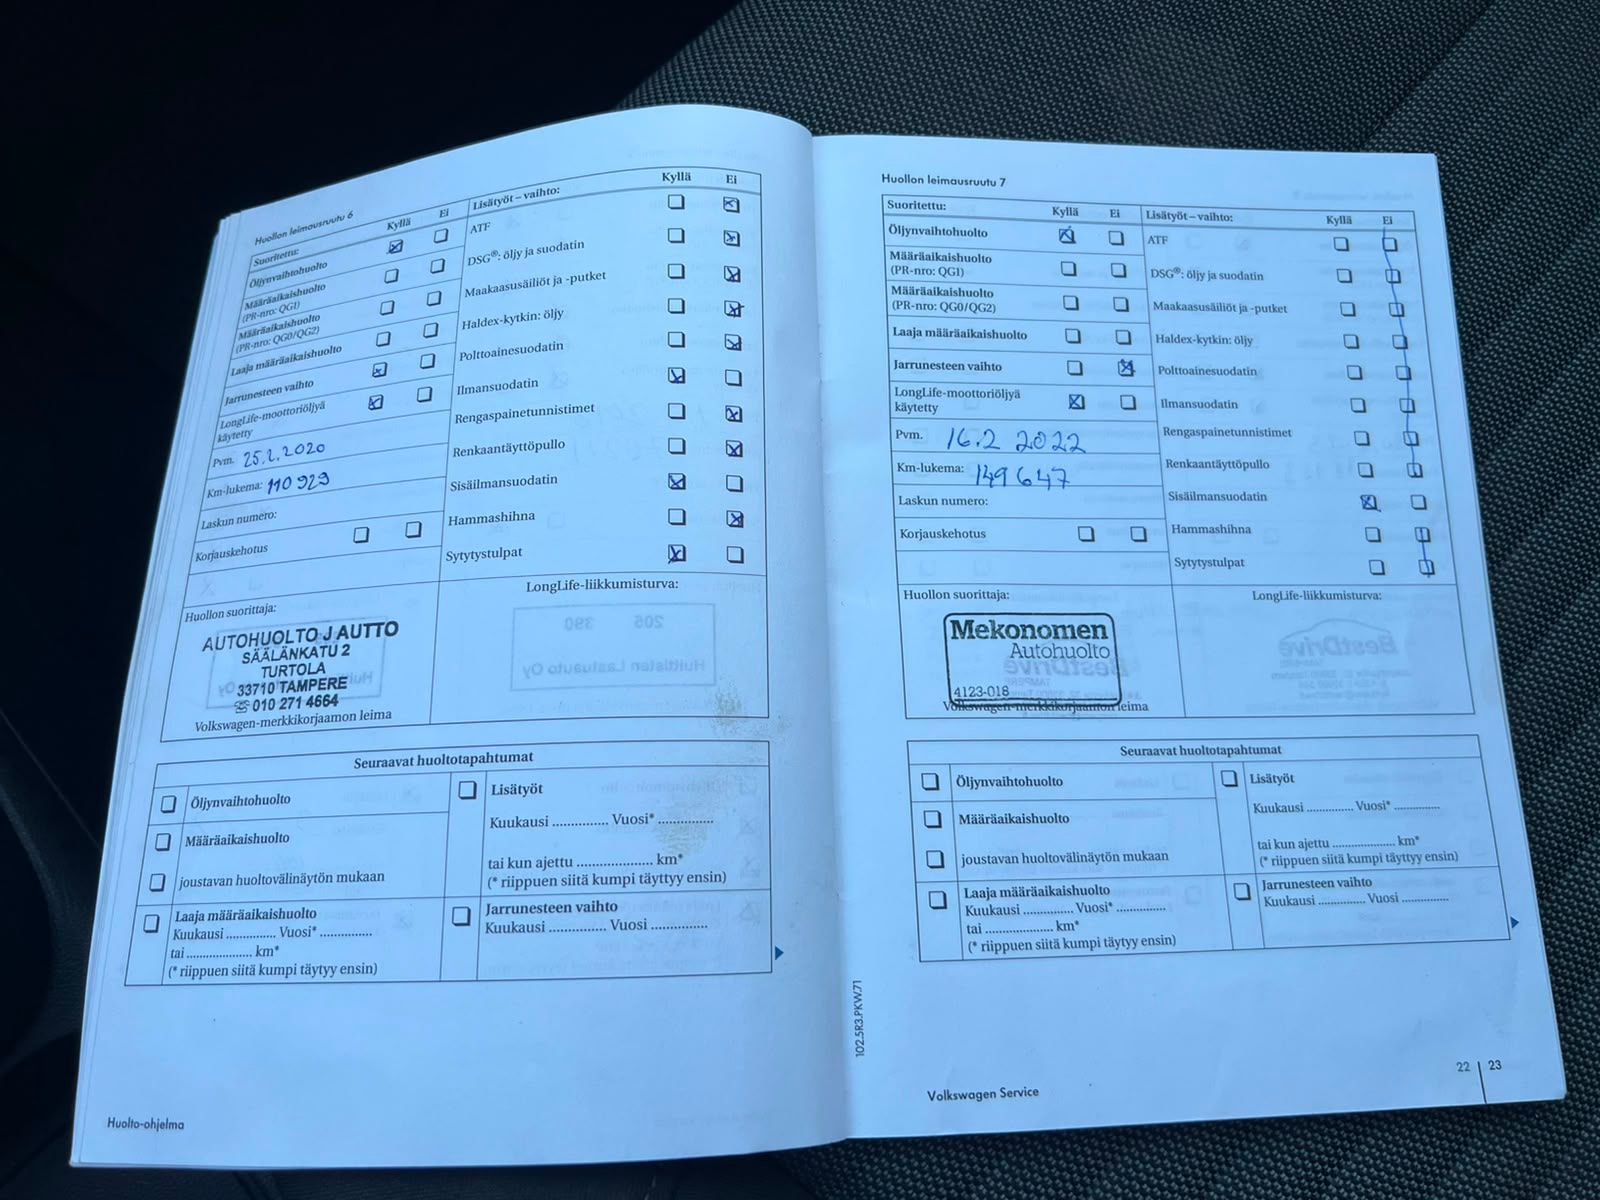 Huollon leimausruutu 6
Suoritettu: Kyllä Ei
Öljynvaihtohuolto
Määräaikaishuolto
(PR-nro: QG1)
Määräaikaishuolto
(PR-nro: QG0/QG2)
Laaja määräaikaishuolto
Jarrunesteen vaihto
LongLife-moottoriöljyä
käytetty
Pvm. 25.2.2020
Km-lukema: 110 929
Laskun numero:
Korjauskehotus
Lisätyöt – vaihto: Kyllä Ei
ATF
DSG®: öljy ja suodatin
Maakaasusäiliöt ja -putket
Haldex-kytkin: öljy
Polttoainesuodatin
Ilmansuodatin
Rengaspainetunnistimet
Renkaantäyttöpullo
Sisäilmansuodatin
Hammashihna
Sytytystulpat
Huollon suorittaja:
AUTOHUOLTO J AUTTO
SÄÄLÄNKATU 2
TURTOLA
33710 TAMPERE
☎ 010 271 4664
Volkswagen-merkkikorjaamon leima
LongLife-liikkumisturva:
Seuraavat huoltotapahtumat
Öljynvaihtohuolto
Määräaikaishuolto
joustavan huoltovälinäytön mukaan
Laaja määräaikaishuolto
Kuukausi ............... Vuosi* ...............
tai .................... km*
(* riippuen siitä kumpi täytyy ensin)
Lisätyöt
Kuukausi ............... Vuosi* ...............
tai kun ajettu .................... km*
(* riippuen siitä kumpi täyttyy ensin)
Jarrunesteen vaihto
Kuukausi ............... Vuosi ...............
Huolto-ohjelma
Huollon leimausruutu 7
Suoritettu: Kyllä Ei
Öljynvaihtohuolto
Määräaikaishuolto
(PR-nro: QG1)
Määräaikaishuolto
(PR-nro: QG0/QG2)
Laaja määräaikaishuolto
Jarrunesteen vaihto
LongLife-moottoriöljyä
käytetty
Pvm. 16.2 2022
Km-lukema: 149 647
Laskun numero:
Korjauskehotus
Lisätyöt – vaihto: Kyllä Ei
ATF
DSG®: öljy ja suodatin
Maakaasusäiliöt ja -putket
Haldex-kytkin: öljy
Polttoainesuodatin
Ilmansuodatin
Rengaspainetunnistimet
Renkaantäyttöpullo
Sisäilmansuodatin
Hammashihna
Sytytystulpat
Huollon suorittaja:
Mekonomen
Autohuolto
4123-018
Volkswagen-merkkikorjaamon leima
LongLife-liikkumisturva:
Seuraavat huoltotapahtumat
Öljynvaihtohuolto
Määräaikaishuolto
joustavan huoltovälinäytön mukaan
Laaja määräaikaishuolto
Kuukausi ............... Vuosi* ...............
tai .................... km*
(* riippuen siitä kumpi täytyy ensin)
Lisätyöt
Kuukausi ............... Vuosi* ...............
tai kun ajettu .................... km*
(* riippuen siitä kumpi täyttyy ensin)
Jarrunesteen vaihto
Kuukausi ............... Vuosi ...............
102.5R3.PKW.71
Volkswagen Service
22 23